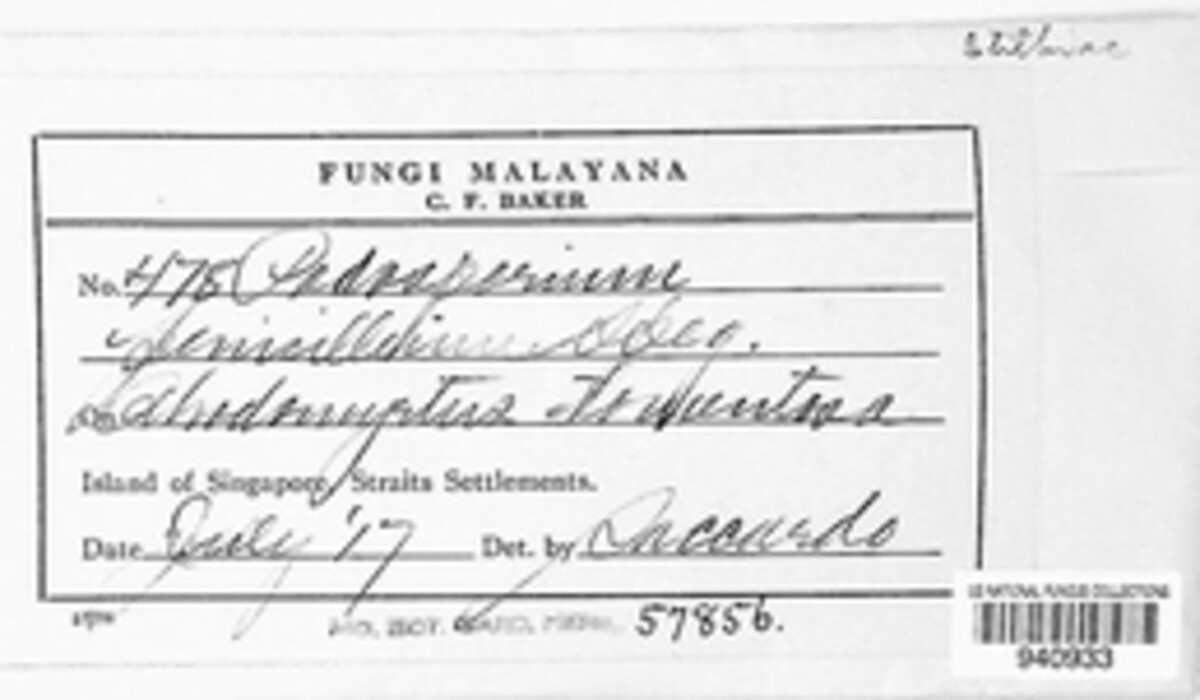 Stilbinae
FUNGI MALAYANA
C. F. BAKER
No. 478 Podosporium
penicillium Speg.
On Rhodomyrtus tomentosa
Island of Singapore, Straits Settlements.
Date July '17 Det. by Saccardo
MO. BOT. GARD. HERB. 57856.
US NATIONAL FUNGUS COLLECTIONS
940933